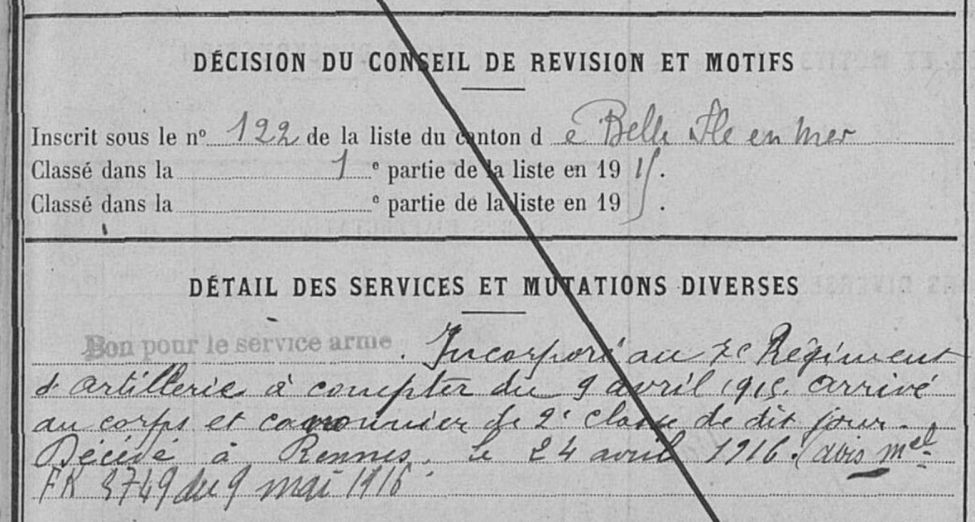 DÉCISION DU CONSEIL DE REVISION ET MOTIFS
Inscrit sous le n° 122 de la liste du canton d e Belle Ile en Mer
Classé dans la 1e partie de la liste en 19 15.
Classé dans la e partie de la liste en 19 .
DÉTAIL DES SERVICES ET MUTATIONS DIVERSES
Bon pour le service armé. Incorporé au 7e Régiment
d'artillerie à compter du 9 avril 1915. arrivé
au corps et canonnier de 2e classe de dit jour.
Décédé à Rennes, le 24 avril 1916. (avis mel
FK 3749 du 9 mai 1916